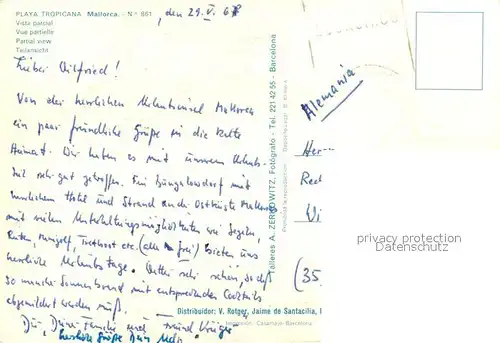 PLAYA TROPICANA Mallorca. - N.º 861
Vista parcial
Vue partielle
Partial view
Teilansicht
, den 29. V. 67
Lieber Wilfried!
Von der herrlichen Urlaubsinsel Mallorca
ein paar freundliche Grüße in die kalte
Heimat. Wir haben es mit unserem Urlaubs-
ziel sehr gut getroffen. Ein Bungalowdorf mit
Hotel und Strand an der Ostküste Mallorcas
mit vielen Unterhaltungsmöglichkeiten wie Segeln,
Reiten, Minigolf, etc. (alles frei) bieten uns
herrliche Urlaubstage. Wetter sehr schön, so daß
so mancher Sonnenbrand mit entsprechenden Cocktails
abgemildert werden muß.
Dir, Deine Familie und Freund
herzliche Grüße Dein
Talleres A. ZERKOWITZ, Fotógrafo - Tel. 221 42 55 - Barcelona
Prohibida la reproducción
Distribuidor: V. Rotger, Jaime de Santacilia,
Impresión. Casamajó-Barcelona
Alemania
Her
(35
privacy protection
Datenschutz